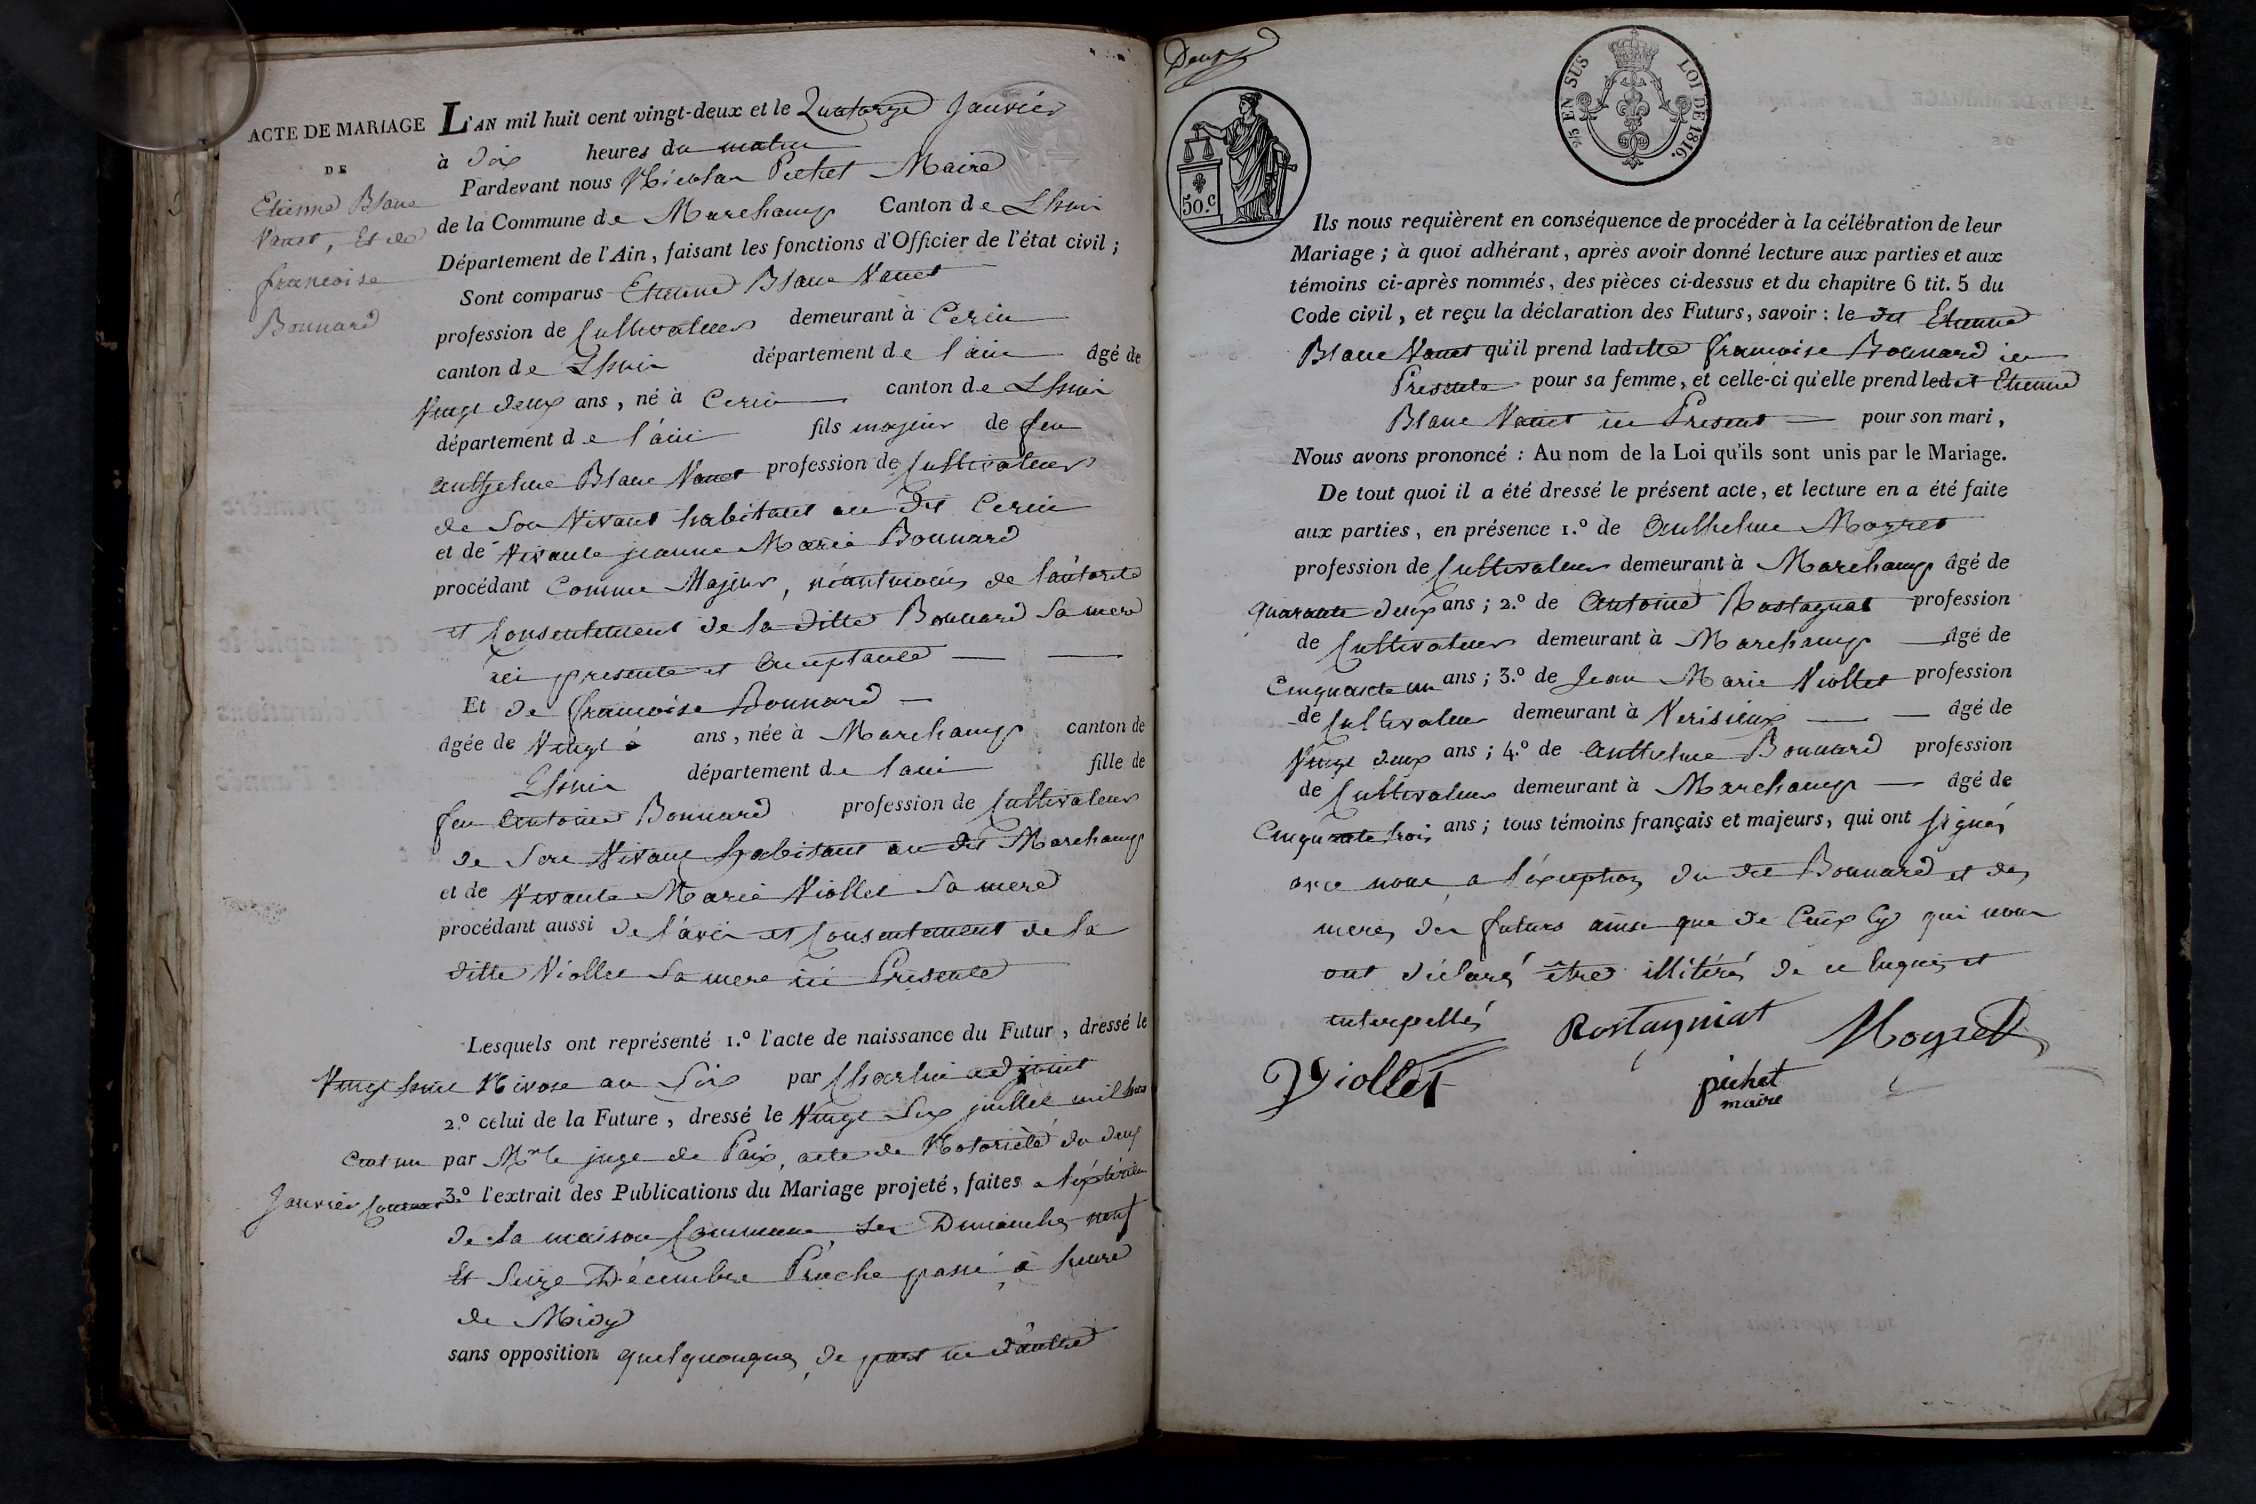 ACTE DE MARIAGE
DE
Etienne Blanc
Vanet, Et de
francoise
Bonnard
L'AN mil huit cent vingt-deux et le Quatorze Janvier
à Dix heures du matin
Pardevant nous Nicolas Pichet Maire
de la Commune de Marchamp Canton de Lhuis
Département de l'Ain, faisant les fonctions d'Officier de l'état civil;
Sont comparus Etienne Blanc Vanet
profession de Cultivateur demeurant à Cerin
canton de Lhuis département de l'ain âgé de
Vingt deux ans, né à Cerin canton de Lhuis
département de l'ain fils majeur de feu
anthelme Blanc Vanet profession de Cultivateur
de Son Vivant habitant au dit Cerin
et de Vivante jeanne Marie Bonnard
procédant Comme Majeur, néantmoins de l'autorité
et Consentement de la ditte Bonnard Sa mere
ici presente et acceptante
Et de francoise Bonnard
âgée de Vingt ans, née à Marchamp canton de
Lhuis département de l'ain fille de
feu antoine Bonnard profession de Cultivateur
de Son Vivant habitant au dit Marchamp
et de Vivante Marie Viollet Sa mere
procédant aussi de l'avis et Consentement de la
ditte Viollet Sa mere ici Presente
Lesquels ont représenté 1.º l'acte de naissance du Futur, dressé le
Vingt huit Nivose an Six par Charlin adjoint
2.º celui de la Future, dressé le Vingt Six juillet mil huit
Cent un par Mr le juge de Paix, acte de Notoriété du deux
Janvier Courant 3.º l'extrait des Publications du Mariage projeté, faites a l'éxterieur
de la maison Commune les Dimanches neuf
Et Seize Décembre Proche passé, à heure
de Midy
sans opposition quelquonques, de part ni d'autre
Deux
50.C
2/5 EN SUS LOI DE 1816.
Ils nous requièrent en conséquence de procéder à la célébration de leur
Mariage; à quoi adhérant, après avoir donné lecture aux parties et aux
témoins ci-après nommés, des pièces ci-dessus et du chapitre 6 tit. 5 du
Code civil, et reçu la déclaration des Futurs, savoir: le dit Etienne
Blanc Vanet qu'il prend laditte francoise Bonnard ici
Presente pour sa femme, et celle-ci qu'elle prend ledit Etienne
Blanc Vanet ici Present pour son mari,
Nous avons prononcé: Au nom de la Loi qu'ils sont unis par le Mariage.
De tout quoi il a été dressé le présent acte, et lecture en a été faite
aux parties, en présence 1.º de Anthelme Moyret
profession de Cultivateur demeurant à Marchamp âgé de
quarante deux ans; 2.º de Antoine Rostagnat profession
de Cultivateur demeurant à Marchamp âgé de
Cinquante un ans; 3.º de Jean Marie Viollet profession
de Cultivateur demeurant à Verisieux âgé de
Vingt deux ans; 4.º de Anthelme Bonnard profession
de Cultivateur demeurant à Marchamp âgé de
Cinquante trois ans; tous témoins français et majeurs, qui ont signés
avec nous a l'éxception du dit Bonnard et des
meres des futurs ainsi que de Ceux Cy qui nous
ont déclarés être illitérés de ce Enquis et
interpellés
Rostagniat Moyret
Viollet pichet
maire